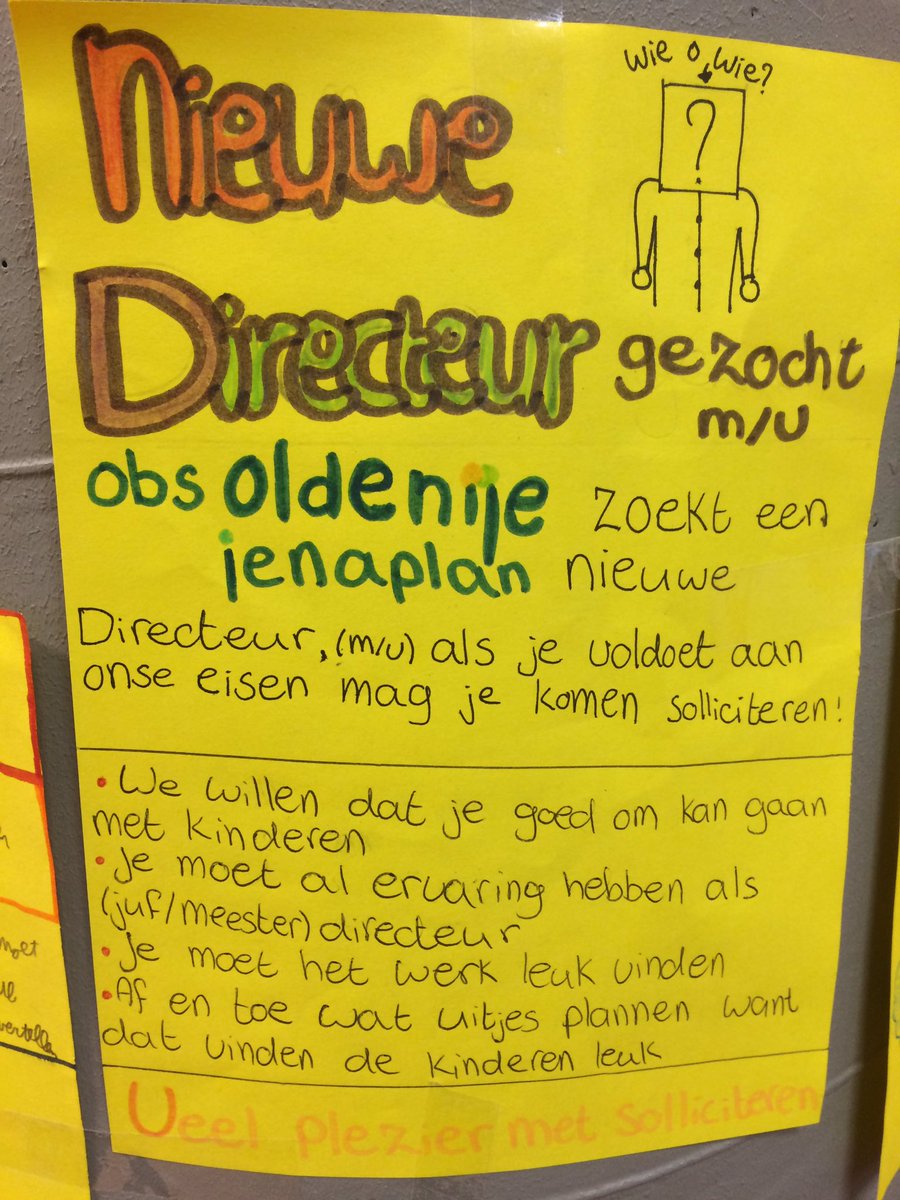 Nieuwe
wie o, wie?
?
Directeur gezocht
m/v
obs Oldenije zoekt een
jenaplan nieuwe
Directeur, (m/v) als je voldoet aan
onse eisen mag je komen solliciteren!
• We willen dat je goed om kan gaan
met kinderen
• Je moet al ervaring hebben als
(juf/meester) directeur
• Je moet het werk leuk vinden
• Af en toe wat uitjes plannen want
dat vinden de kinderen leuk
Veel plezier met solliciteren
moet
vertelle